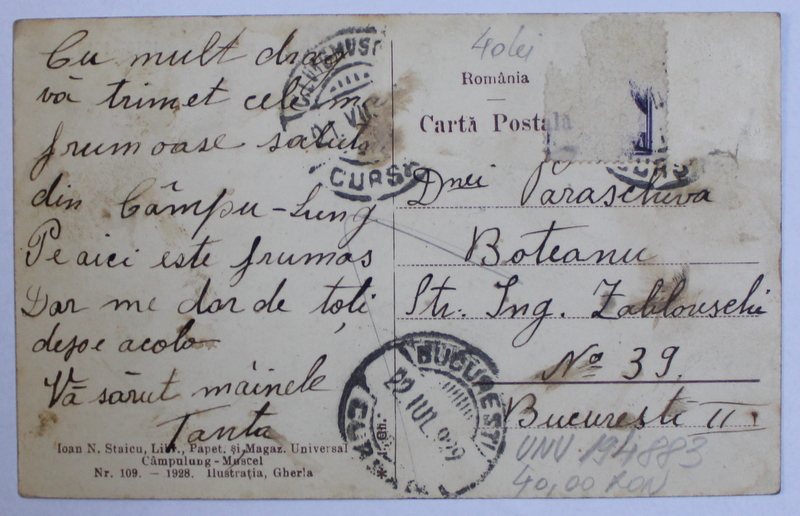 Cu mult drag
vă trimet cele mai
frumoase salutări
din Câmpu-Lung
Pe aici este frumos
Dar me dor de toți
depe acolo
Vă sărut mâinele
Tanta
Ioan N. Staicu, Libr., Papet. și Magaz. Universal
Câmpulung-Muscel
Nr. 109. — 1928. Ilustrația, Gherla
40 lei
România
Carta Postală
CURSA
Dnei Parascheva
Boteanu
Str. Ing. Zablovschi
No 39.
Bucuresti II
BUCUREȘTI
22 IUL 929
UNV 194883
40,00 RON